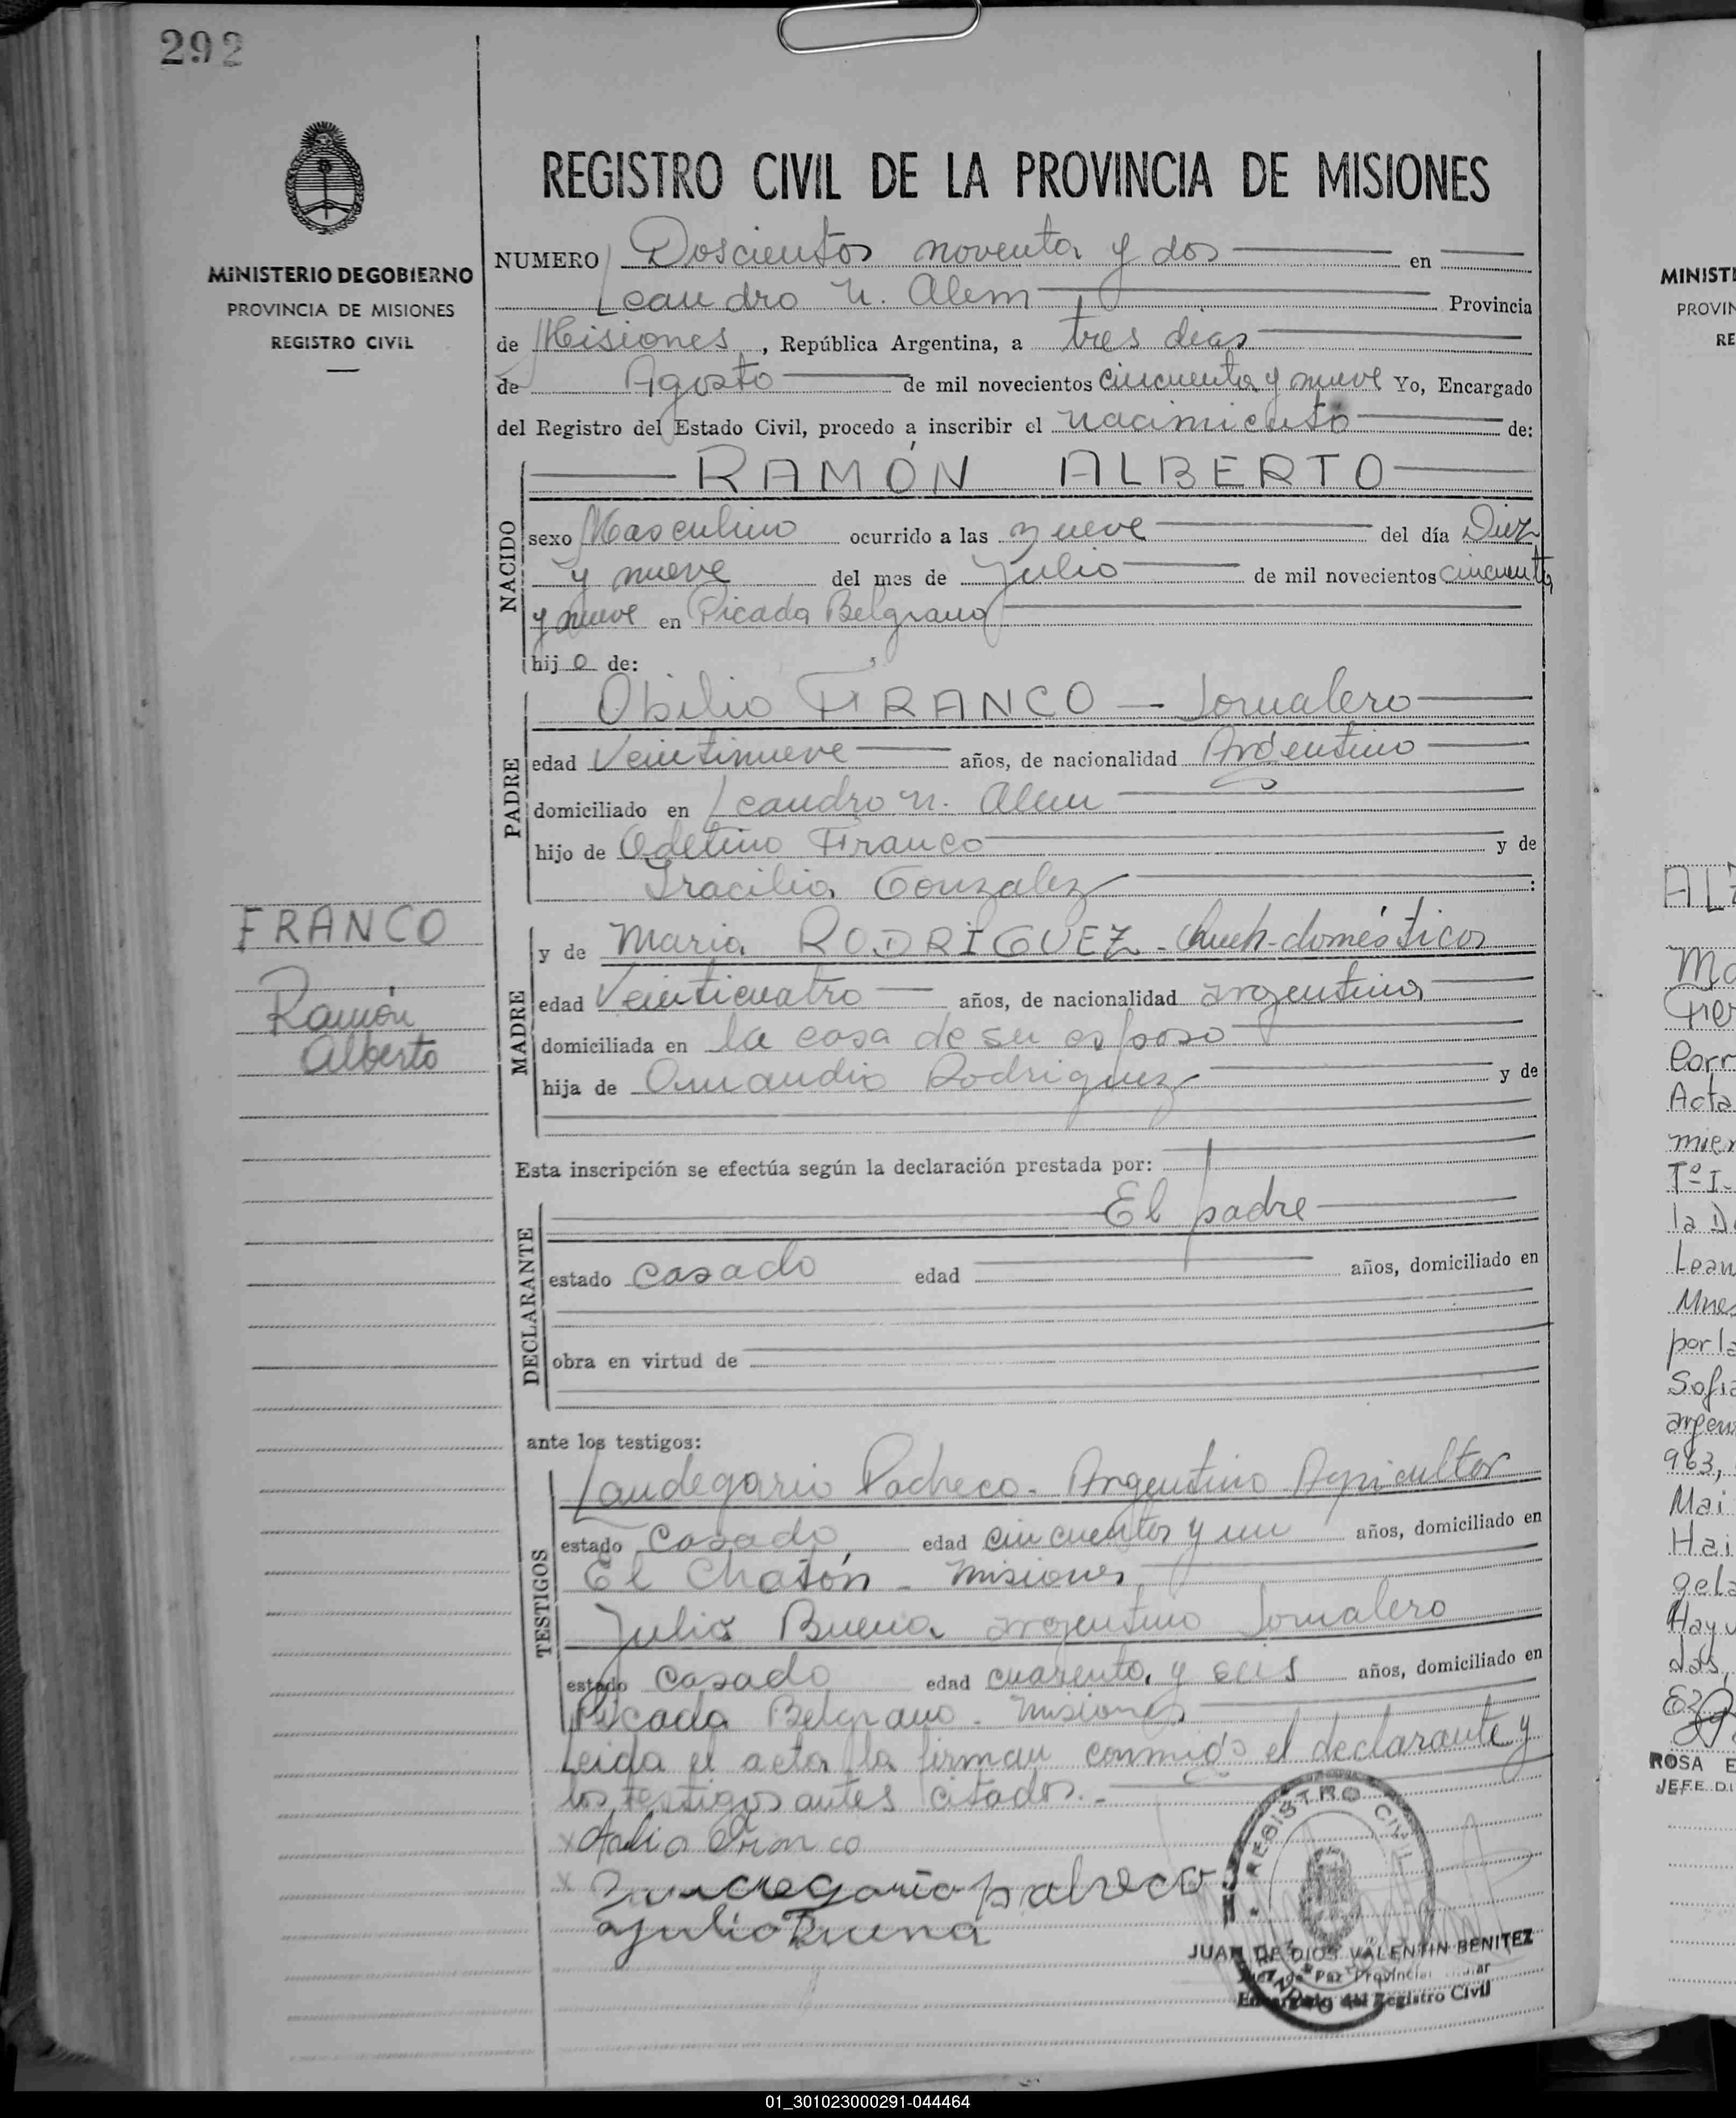 292
MINISTERIO DE GOBIERNO
PROVINCIA DE MISIONES
REGISTRO CIVIL
REGISTRO CIVIL DE LA PROVINCIA DE MISIONES
NUMERO Doscientos noventa y dos en
Leandro N. Alem Provincia
de Misiones, República Argentina, a tres dias
de Agosto de mil novecientos cincuenta y nueve Yo, Encargado
del Registro del Estado Civil, procedo a inscribir el nacimiento de:
RAMÓN ALBERTO
NACIDO
sexo Masculino ocurrido a las nueve del día Diez
y nueve del mes de Julio de mil novecientos cincuenta
y nueve en Picada Belgrano
hijo de:
PADRE
FRANCO - Jornalero
edad Veintinueve años, de nacionalidad Argentino
domiciliado en Leandro N. Alem
hijo de Franco y de
Gonzalez :
FRANCO
Ramón
Alberto
MADRE
y de Maria RODRIGUEZ - domésticos
edad Veinticuatro años, de nacionalidad argentina
domiciliada en la casa de su esposo
hija de Rodriguez y de
Esta inscripción se efectúa según la declaración prestada por:
El padre
DECLARANTE
estado casado edad años, domiciliado en
obra en virtud de
ante los testigos:
TESTIGOS
Laudegario Pacheco - Argentino Agricultor
estado Casado edad cincuenta y un años, domiciliado en
El Chatón - Misiones
Julio Buena argentino Jornalero
estado casado edad cuarenta y seis años, domiciliado en
Picada Belgrano - Misiones
Leida el acta la firman conmigo el declarante y
los testigos antes citados.-
Julio Buena
REGISTRO CIVIL
JUAN DE DIOS VALENTIN BENITEZ
Juez de Paz Provincial
Encargado del Registro Civil
MINIST
PROVIN
RE
Corr
Acta
la D
Lean
por la
Sofia
argen
963,
Mai
Hai
gela
Hay
ROSA E
JEFE DI
01_301023000291-044464